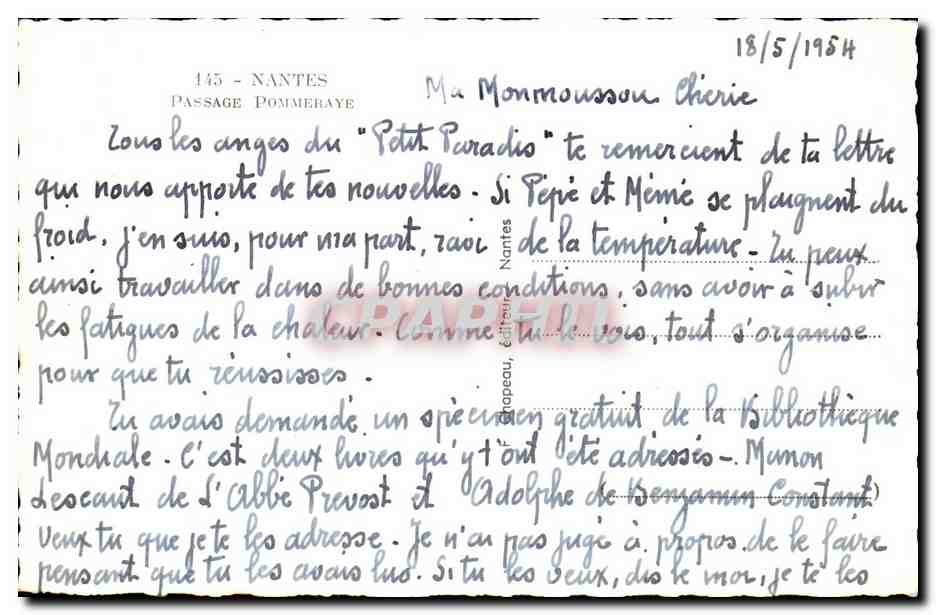 18/5/1954
145 - NANTES
PASSAGE POMMERAYE
Ma Monmoussou Chérie
Tous les anges du "Petit Paradis" te remercient de ta lettre
qui nous apporte de tes nouvelles - Si Pépé et Mémé se plaignent du
froid, j'en suis, pour ma part, ravi de la température - Tu peux
ainsi travailler dans de bonnes conditions, sans avoir à subir
les fatigues de la chaleur - Comme tu le vois, tout s'organise
pour que tu réussisses.
Tu avais demandé un spécimen gratuit de la Bibliothèque
Mondiale - C'est deux livres qu'y t'ont été adressés - Manon
Lescaut de L'Abbé Prevost et Adolphe (de Benjamin Constant)
Veux tu que je te les adresse - Je n'ai pas jugé à propos de le faire
pensant que tu les avais lus. Si tu les veux, dis le moi, je te les
F. Chapeau, éditeur, Nantes
CPARAMA